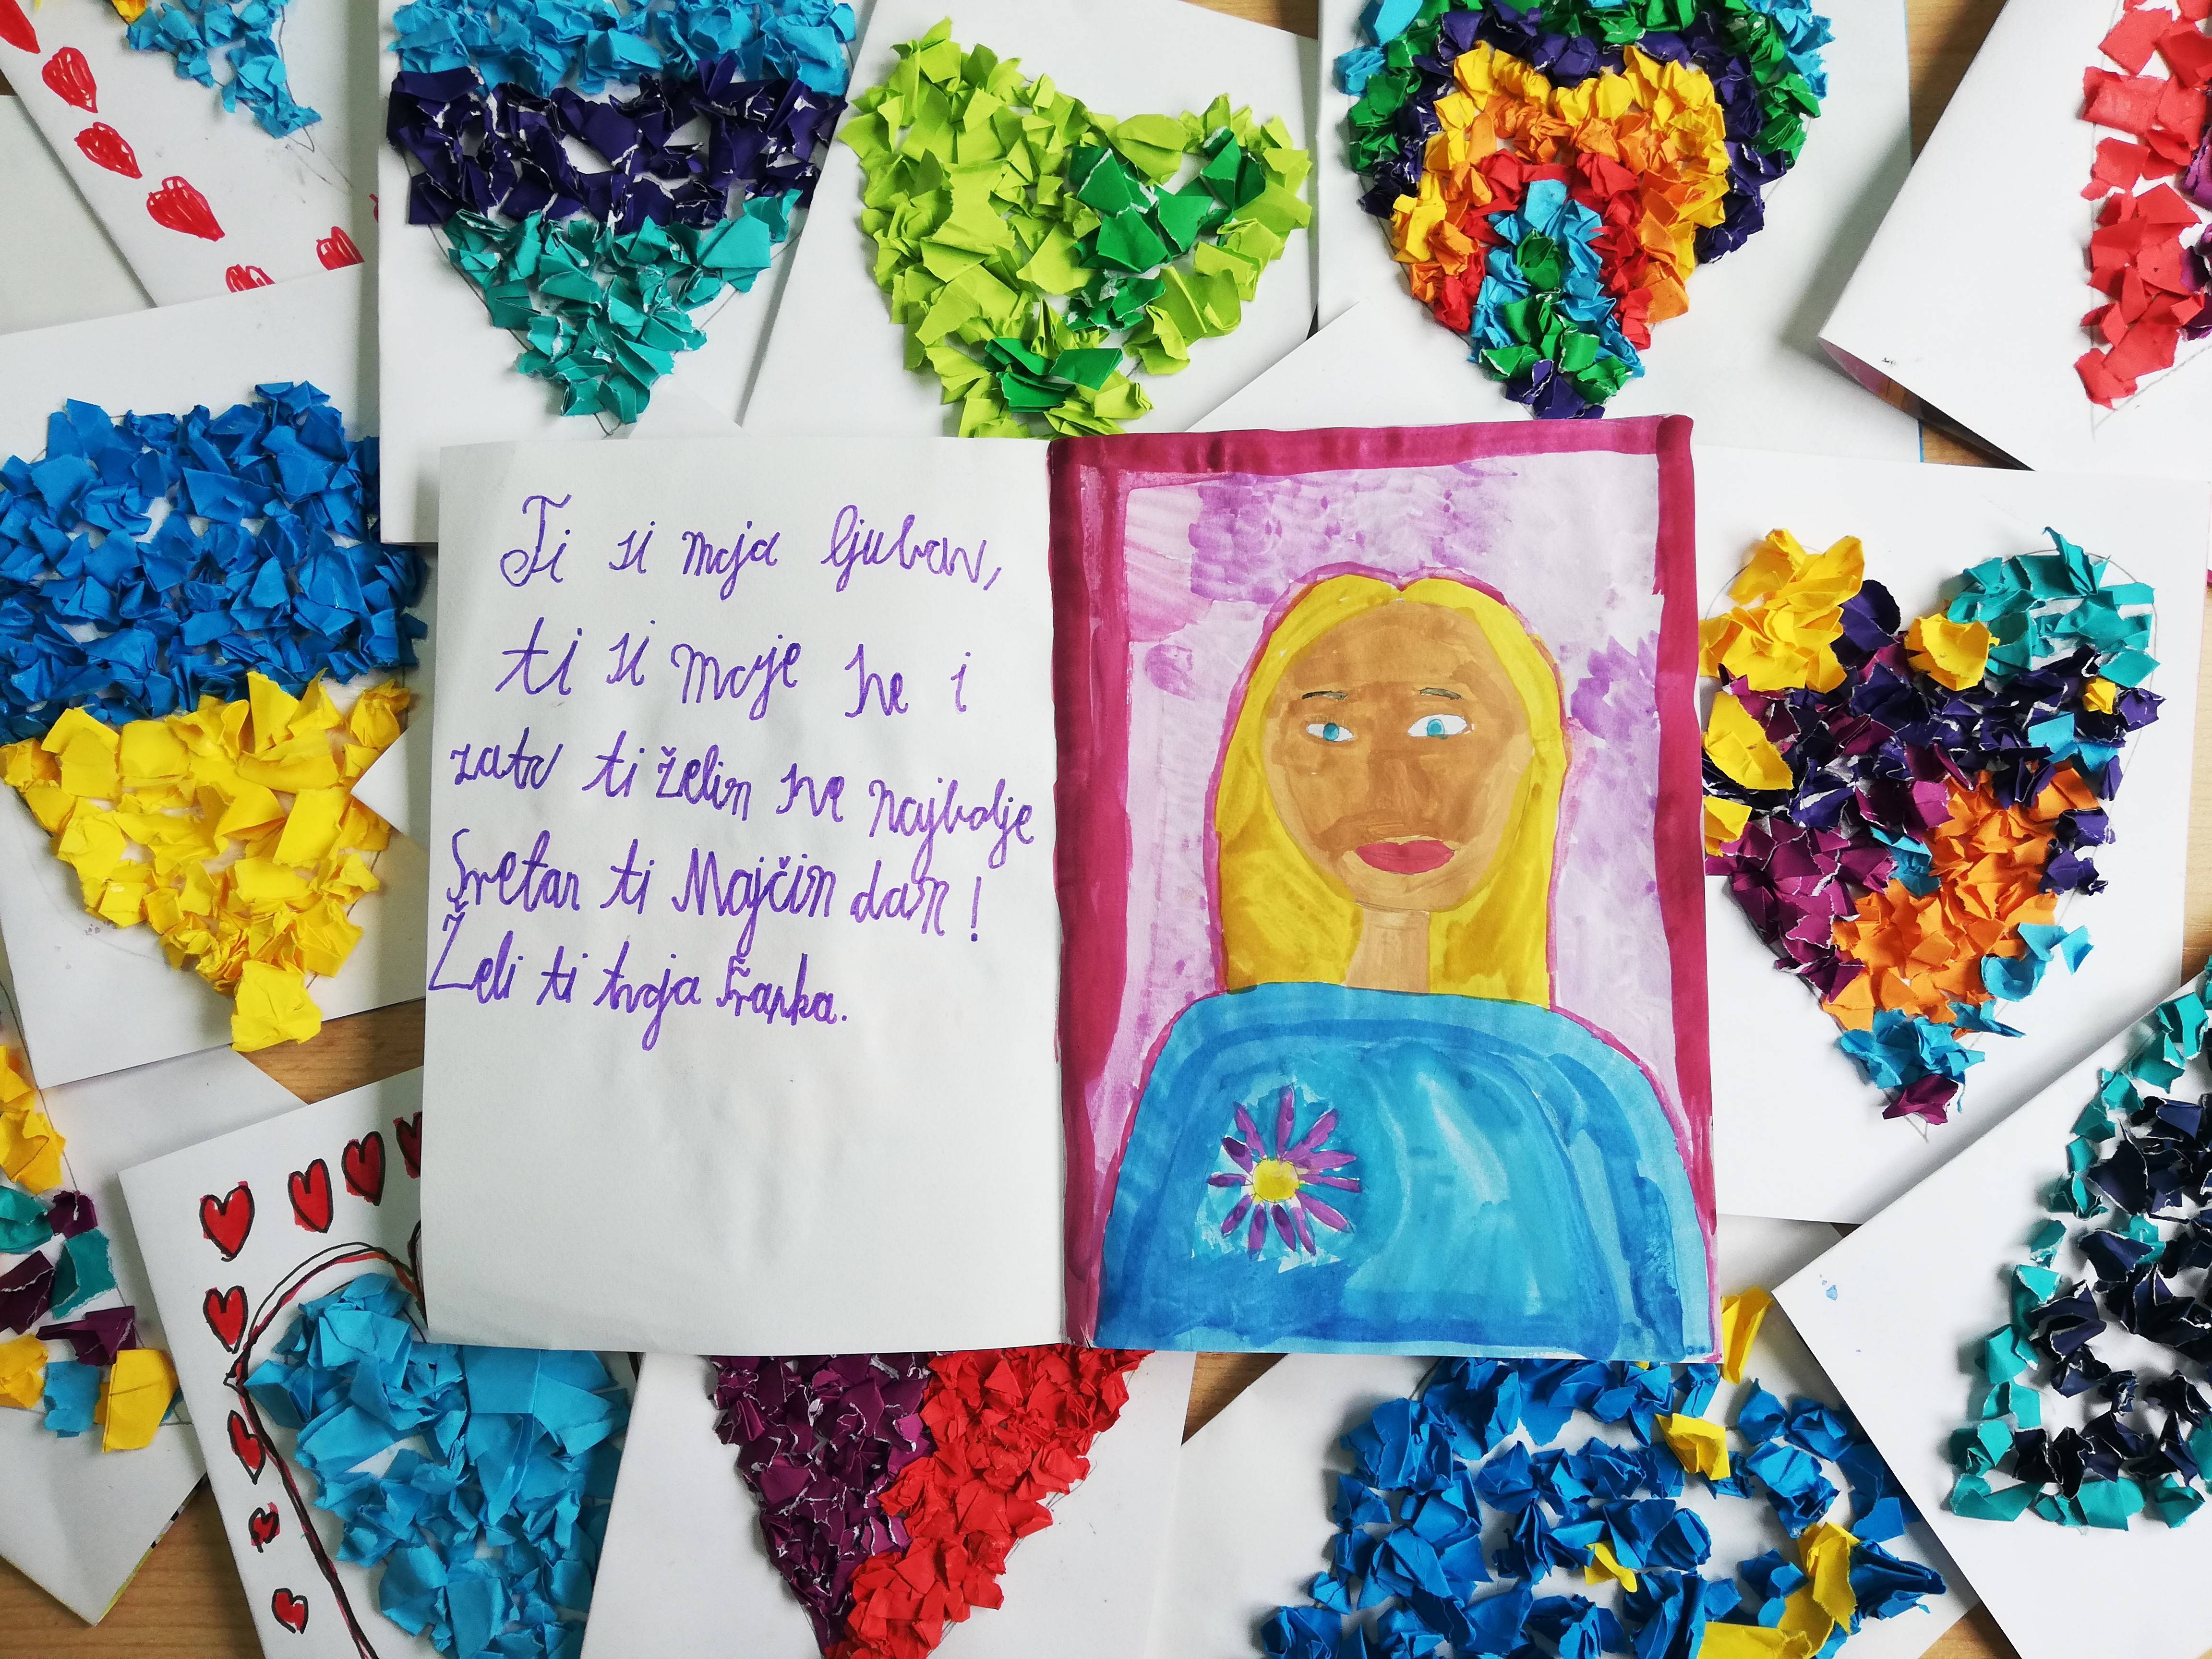 Ti si moja ljubav,
ti si moje sve i
zato ti želim sve najbolje
Sretan ti Majčin dan!
Želi ti tvoja Franka.